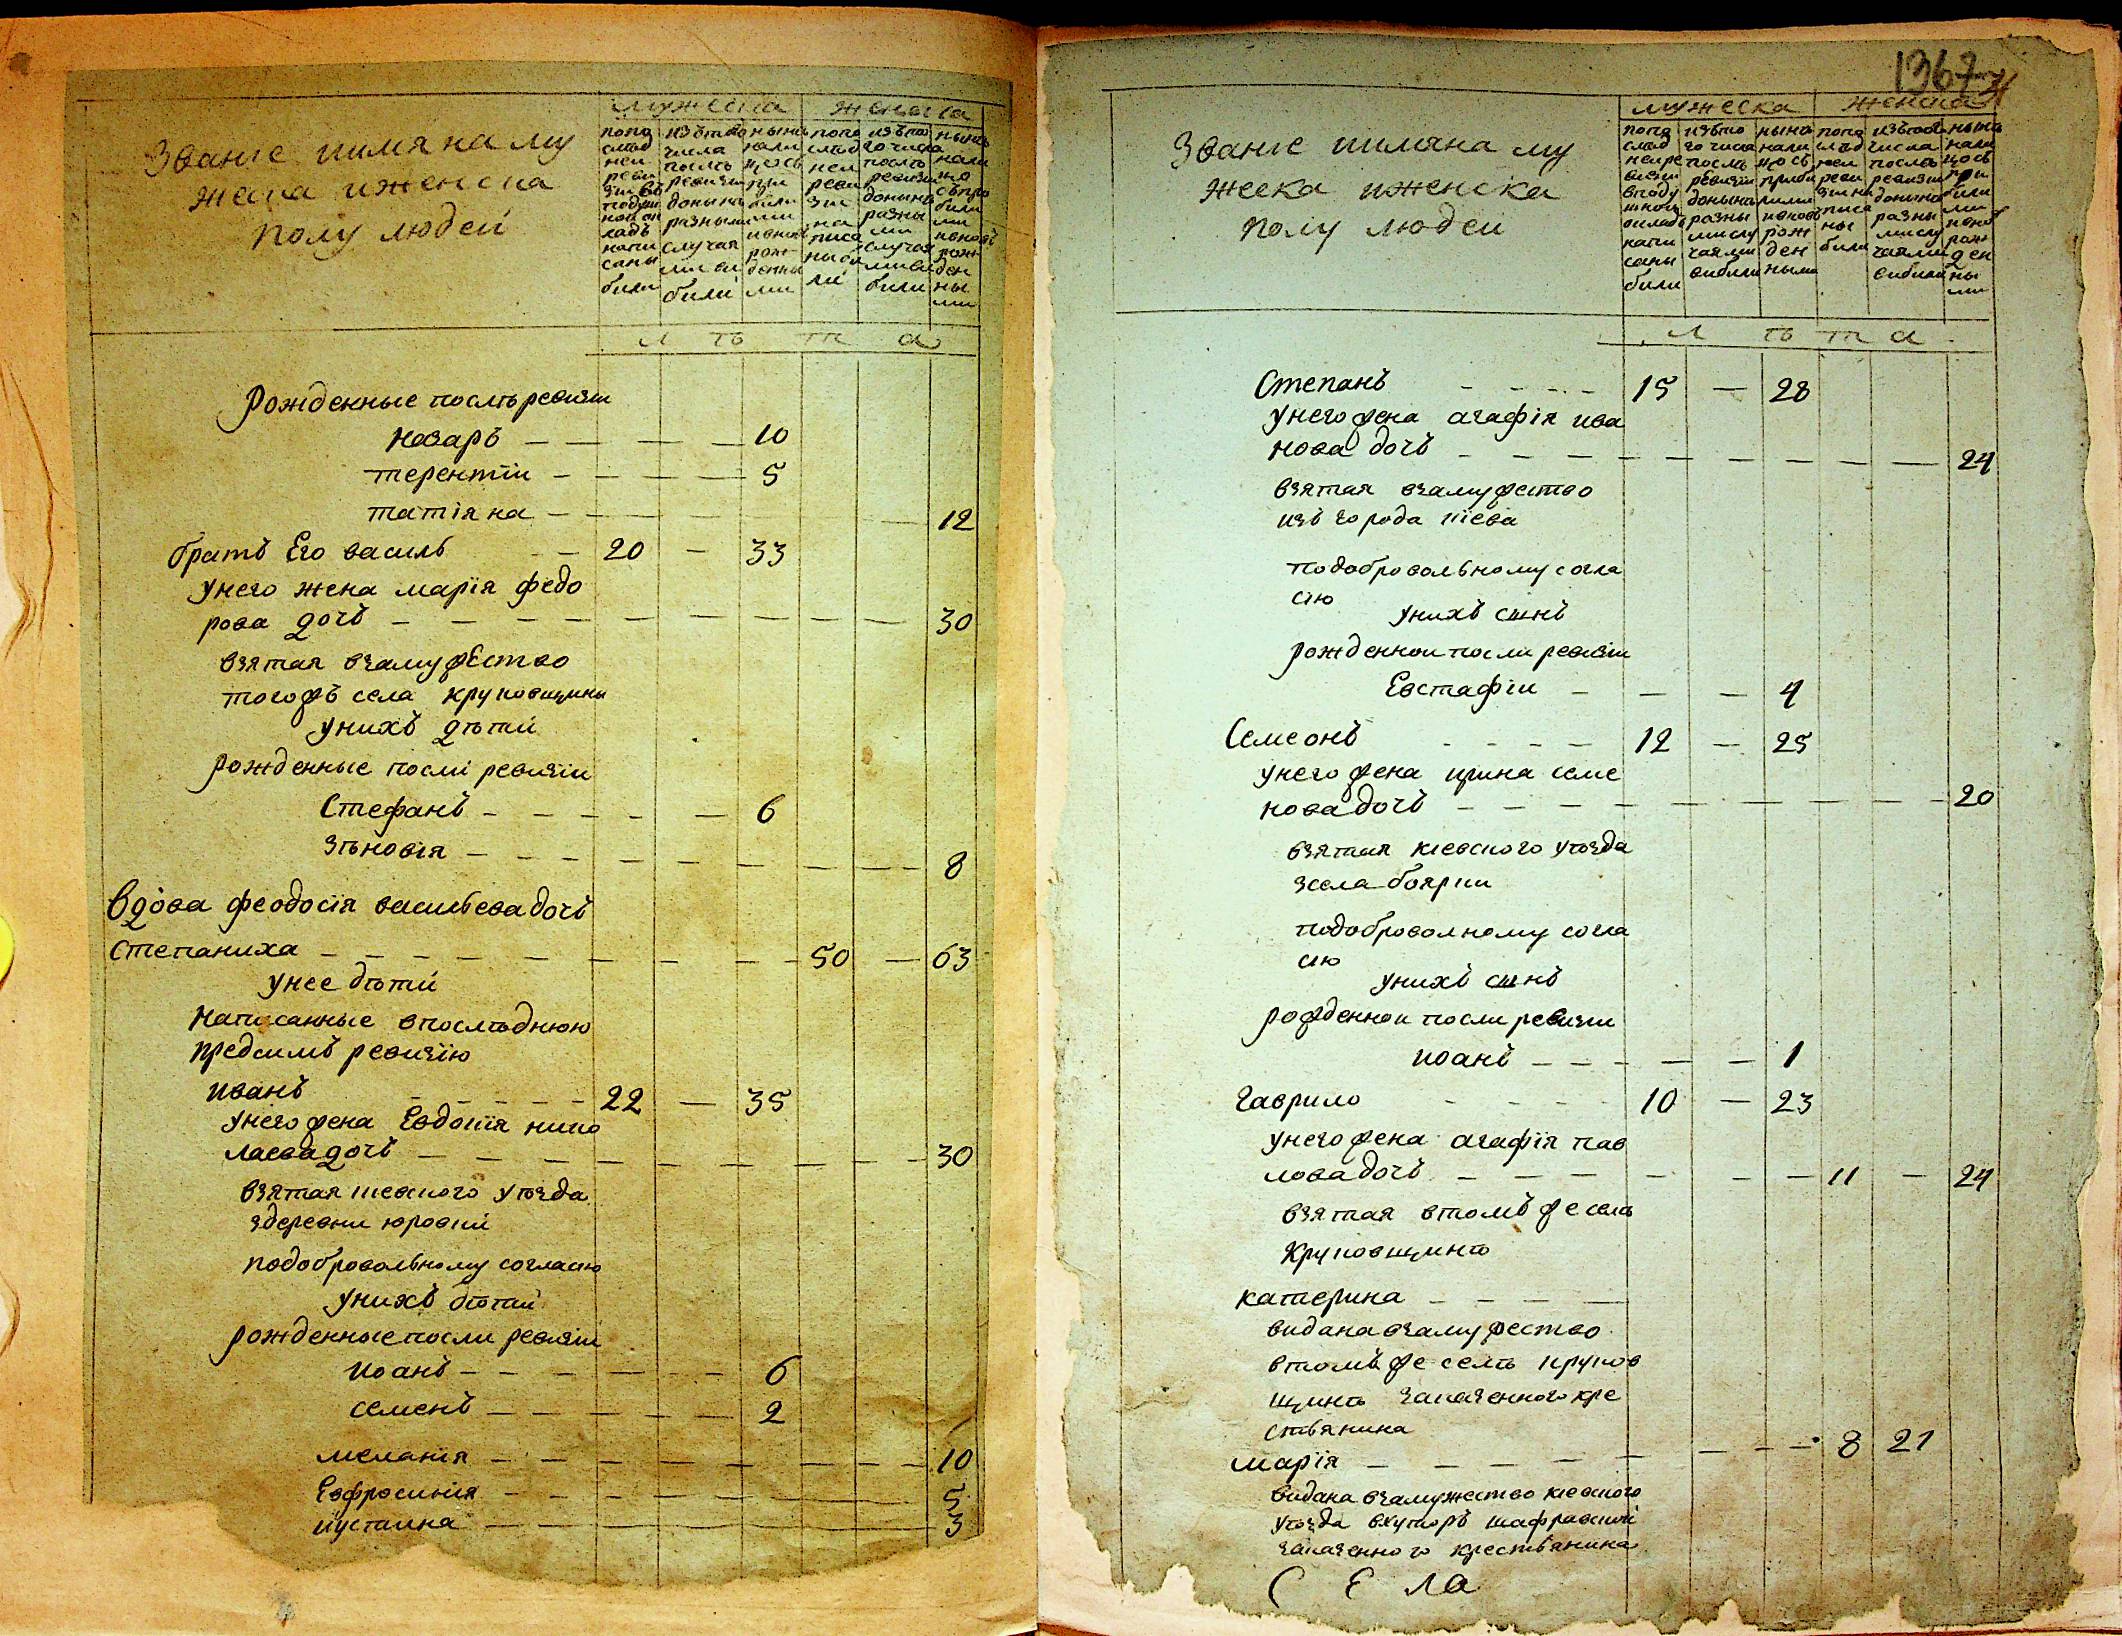 мужеска женьска
Званіе иимя на му
жеска иженска
полу людей
попо
слѣд
ней
реви
зіи въ
подуш
ной ок
ладъ
напи
саны
були
изътаго
числа
послѣ
ревизіи
донынѣ
разными
случая
ми ви
були
нынѣ
нали
цо съ
при
були
ми
ивновъ
рож
денны
ми
попо
слѣд
ней
реви
зіи
на
писа
ны бу
ли
изъто
го числа
послѣ
ревизіи
донынѣ
разны
ми
случая
ми ви
були
нынѣ
нали
цо
съпри
були
ми
ивновъ
рож
ден
ны
ми
л ѣ т а
Рожденные послѣ ревизіи
Назаръ — — — — 10
терентіи — — — — 5
татіяна — — — 12
братъ Его василь — 20 — 33
Унего жена марія федо
рова дочь — — — — — — — — — 30
взятая взамужество
тогожъ села круповщины
Унихъ дѣти
Рожденные послі ревизіи
Стефанъ — — — — — 6
Зѣновія — — — — — — — — — 8
Вдова феодосія васильева дочь
Степаниха — — — — — — — — 50 — 63
Унее дѣти
Написанные впослѣднюю
предсимъ ревизію
иванъ — — — — 22 — 35
Унего жена Евдокія нико
лаева дочь — — — — — — — — 30
Взятая киевского уѣзда
здеревни юровки
подобровольному согласію
Унихъ дѣти
Рожденные посли ревизіи
иоанъ — — — — — 6
семенъ — — — — — 2
меланія — — — — — — — — 10
Евфросинія — — — — — — — — 5
иустина — — — — — — — — 3
1367
мужеска женска
Званіе иимяна му
жеска иженска
полу людеи
попо
слѣд
неи ре
визіи
вподу
шной
окладъ
напи
саны
були
изъто
го числа
послѣ
ревизіи
донынѣ
разны
ми слу
чаями
вибили
нынѣ
нали
цо съ
прибу
лими
ивновъ
рож
ден
ными
попо
слѣд
неи
реви
зіи на
писа
ны
були
изътого
числа
послѣ
ревизіи
донынѣ
разны
ми слу
чаями
вибили
нынѣ
нали
цо съ
при
були
ми
ивновъ
рож
ден
ны
ми
л ѣ т а
Степанъ — — — — 15 — 28
Унего жена агафія ива
нова дочь — — — — — — — — — 24
взятая взамужество
изъ города кіева
подобровольному согла
сію
Унихъ синъ
Рожденнои посли ревизіи
Евстафіи — — — 4
Семеонъ — — — — 12 — 25
Унего жена ирина семе
нова дочь — — — — — — — — — 20
взятая киевского уѣзда
зсела боярки
подоброволному согла
сію
Унихъ синъ
рожденнои посли ревизіи
иоанъ — — — — — 1
Гаврило — — — — 10 — 23
Унего жена агафія пав
лова дочь — — — — — — — 11 — 24
взятая втомъ же селѣ
Круповщинѣ
катерина — — — —
видана взамужество
втомъ же селѣ крупов
щинѣ заказенного кре
стьянина
— — — 8 21
марія — — — — —
видана взамужество киевского
уѣзда вхуторъ шафравский
заказенного крестьянина
С Е ла